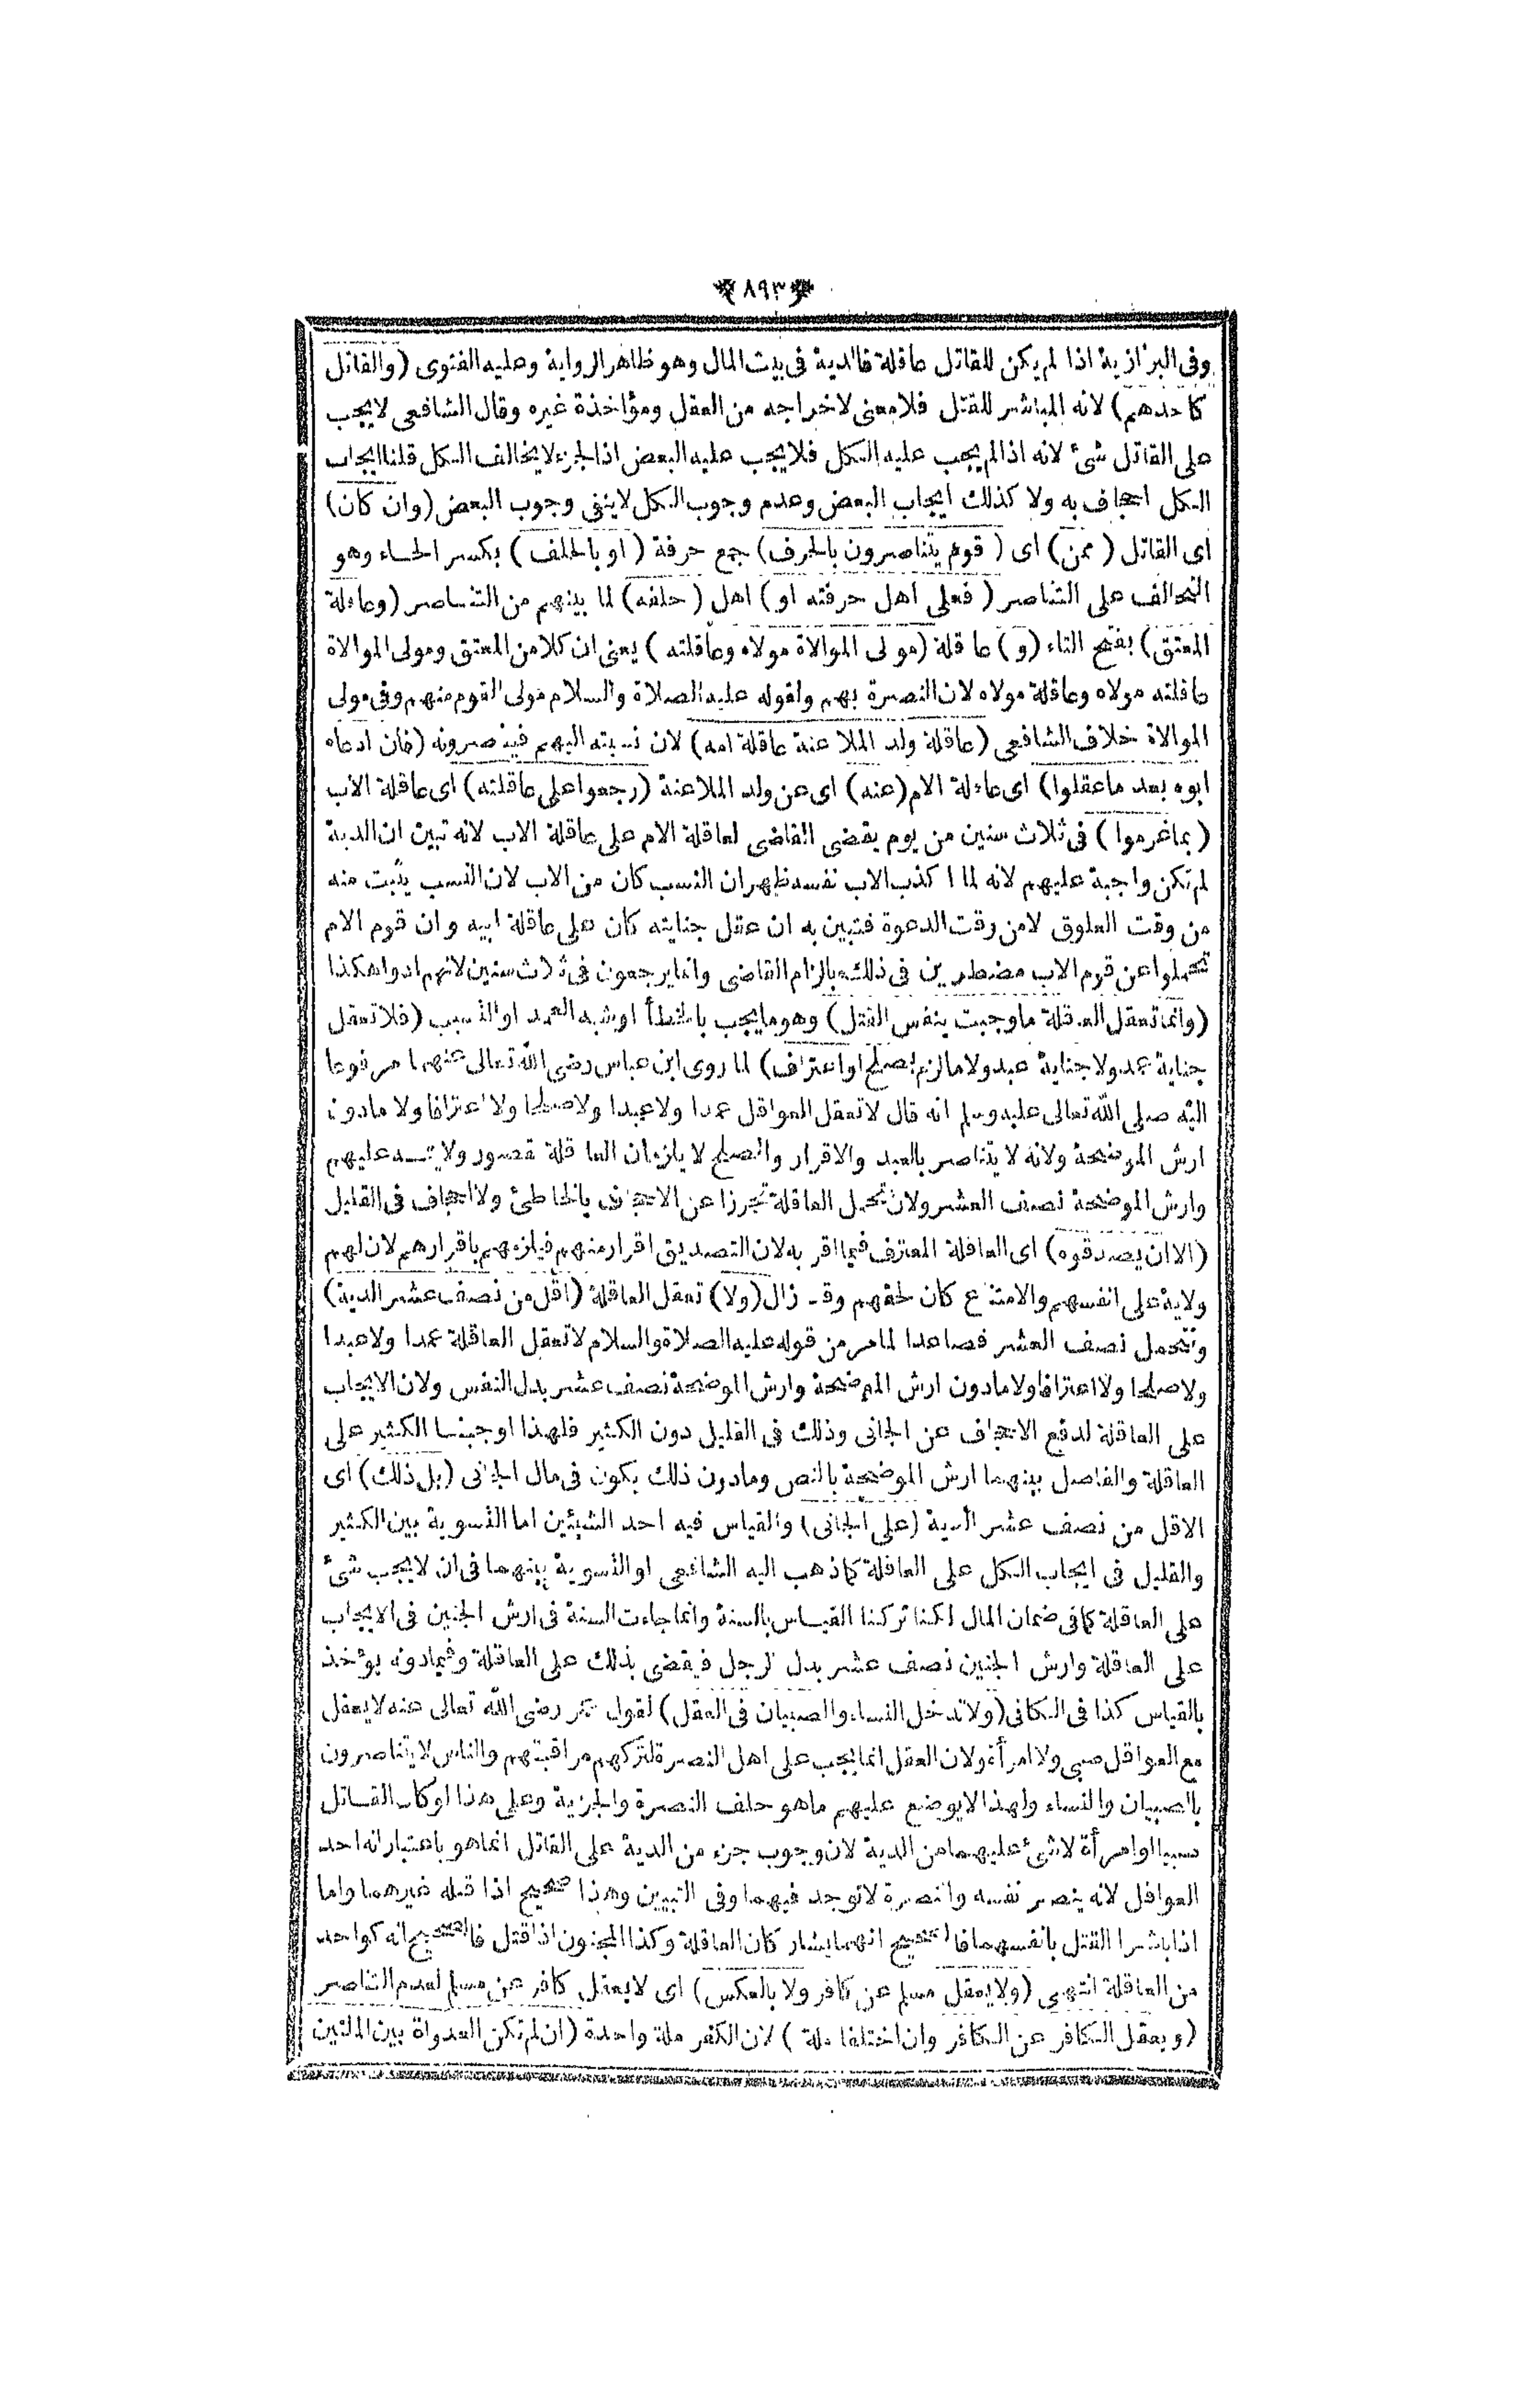 ﴿٨٩٣﴾
وفى البزازية اذا لم يكن للقاتل عاقلة فالدية فى بيت المال وهو ظاهر الرواية وعليه الفتوى (والقاتل
كاحدهم) لانه المباشر للقتل فلا معنى لاخراجه من العقل ومؤاخذة غيره وقال الشافعى لا يجب
على القاتل شئ لانه اذا لم يجب عليه الكل فلا يجب عليه البعض اذ الجزء لا يخالف الكل قلنا ايجاب
الكل اجحاف به ولا كذلك ايجاب البعض وعدم وجوب الكل لا ينفى وجوب البعض (وان كان)
اى القاتل (ممن) اى (قوم يتناصرون بالحرف) جمع حرفة (او بالحلف) بكسر الحاء وهو
التحالف على التناصر (فعلى اهل حرفته او) اهل (حلفه) لما بينهم من التناصر (وعاقلة
المعتق) بفتح التاء (و) عاقلة (مولى الموالاة مولاه وعاقلته) يعنى ان كلا من المعتق ومولى الموالاة
عاقلته مولاه وعاقلة مولاه لان النصرة بهم ولقوله عليه الصلاة والسلام مولى القوم منهم وفى مولى
الموالاة خلاف الشافعى (عاقلة ولد الملاعنة عاقلة امه) لان نسبته اليهم فينصرونه (فان ادعاه
ابوه بعد ما عقلوا) اى عاقلة الام (عنه) اى عن ولد الملاعنة (رجعوا على عاقلته) اى عاقلة الاب
(بما غرموا) فى ثلاث سنين من يوم يقضى القاضى لعاقلة الام على عاقلة الاب لانه تبين ان الدية
لم تكن واجبة عليهم لانه لما اكذب الاب نفسه ظهر ان النسب كان من الاب لان النسب يثبت منه
من وقت العلوق لا من وقت الدعوة فتبين به ان عقل جنايته كان على عاقلة ابيه وان قوم الام
تحملوا عن قوم الاب مضطرين فى ذلك بالزام القاضى وانما يرجعون فى ثلاث سنين لانهم ادوا هكذا
(وانما تعقل العاقلة ما وجبت بنفس القتل) وهو ما يجب بالخطأ او شبه العمد او التسبب (فلا تعقل
جناية عمد ولا جناية عبد ولا ما لزم بصلح او اعتراف) لما روى ابن عباس رضى الله تعالى عنهما مرفوعا
اليه صلى الله تعالى عليه وسلم انه قال لا تعقل العواقل عمدا ولا عبدا ولا صلحا ولا اعترافا ولا ما دون
ارش الموضحة ولانه لا يتناصر بالعبد والاقرار والصلح لا يلزمان العاقلة قصور ولا يته عليهم
وارش الموضحة نصف العشر ولان تحمل العاقلة تحرزا عن الاجحاف بالخاطئ ولا اجحاف فى القليل
(الا ان يصدقوه) اى العاقلة المعترف فيما اقر به لان التصديق اقرار منهم فيلزمهم باقرارهم لان لهم
ولاية على انفسهم والامتناع كان لحقهم وقد زال (ولا) تعقل العاقلة (اقل من نصف عشر الدية)
وتتحمل نصف العشر فصاعدا لما مر من قوله عليه الصلاة والسلام لا تعقل العاقلة عمدا ولا عبدا
ولا صلحا ولا اعترافا ولا ما دون ارش الموضحة وارش الموضحة نصف عشر بدل النفس ولان الايجاب
على العاقلة لدفع الاجحاف عن الجانى وذلك فى القليل دون الكثير فلهذا اوجبنا الكثير على
العاقلة والفاصل بينهما ارش الموضحة بالنص وما دون ذلك يكون فى مال الجانى (بل ذلك) اى
الاقل من نصف عشر الدية (على الجانى) والقياس فيه احد الشيئين اما التسوية بين الكثير
والقليل فى ايجاب الكل على العاقلة كما ذهب اليه الشافعى او التسوية بينهما فى ان لا يجب شئ
على العاقلة كما فى ضمان المال لكنا تركنا القياس بالسنة وانما جاءت السنة فى ارش الجنين فى الايجاب
على العاقلة وارش الجنين نصف عشر بدل الرجل فيقضى بذلك على العاقلة وفيما دونه يؤخذ
بالقياس كذا فى الكافى (ولا تدخل النساء والصبيان فى العقل) لقول عمر رضى الله تعالى عنه لا يعقل
مع العواقل صبى ولا امرأة ولان العقل انما يجب على اهل النصرة لتركهم مراقبتهم والناس لا يتناصرون
بالصبيان والنساء ولهذا لا يوضع عليهم ما هو خلف النصرة والجزية وعلى هذا لو كان القاتل
صبيا او امرأة لا شئ عليهما من الدية لان وجوب جزء من الدية على القاتل انما هو باعتبار انه احد
العواقل لانه ينصر نفسه والنصرة لا توجد فيهما وفى التبيين وهذا صحيح اذا قتله غيرهما واما
اذا باشرا القتل بانفسهما فالصحيح انهما يشاركان العاقلة وكذا المجنون اذا قتل فالصحيح انه كواحد
من العاقلة انتهى (ولا يعقل مسلم عن كافر ولا بالعكس) اى لا يعقل كافر عن مسلم لعدم التناصر
(ويعقل الكافر عن الكافر وان اختلفا ملة) لان الكفر ملة واحدة (ان لم تكن العداوة بين الملتين